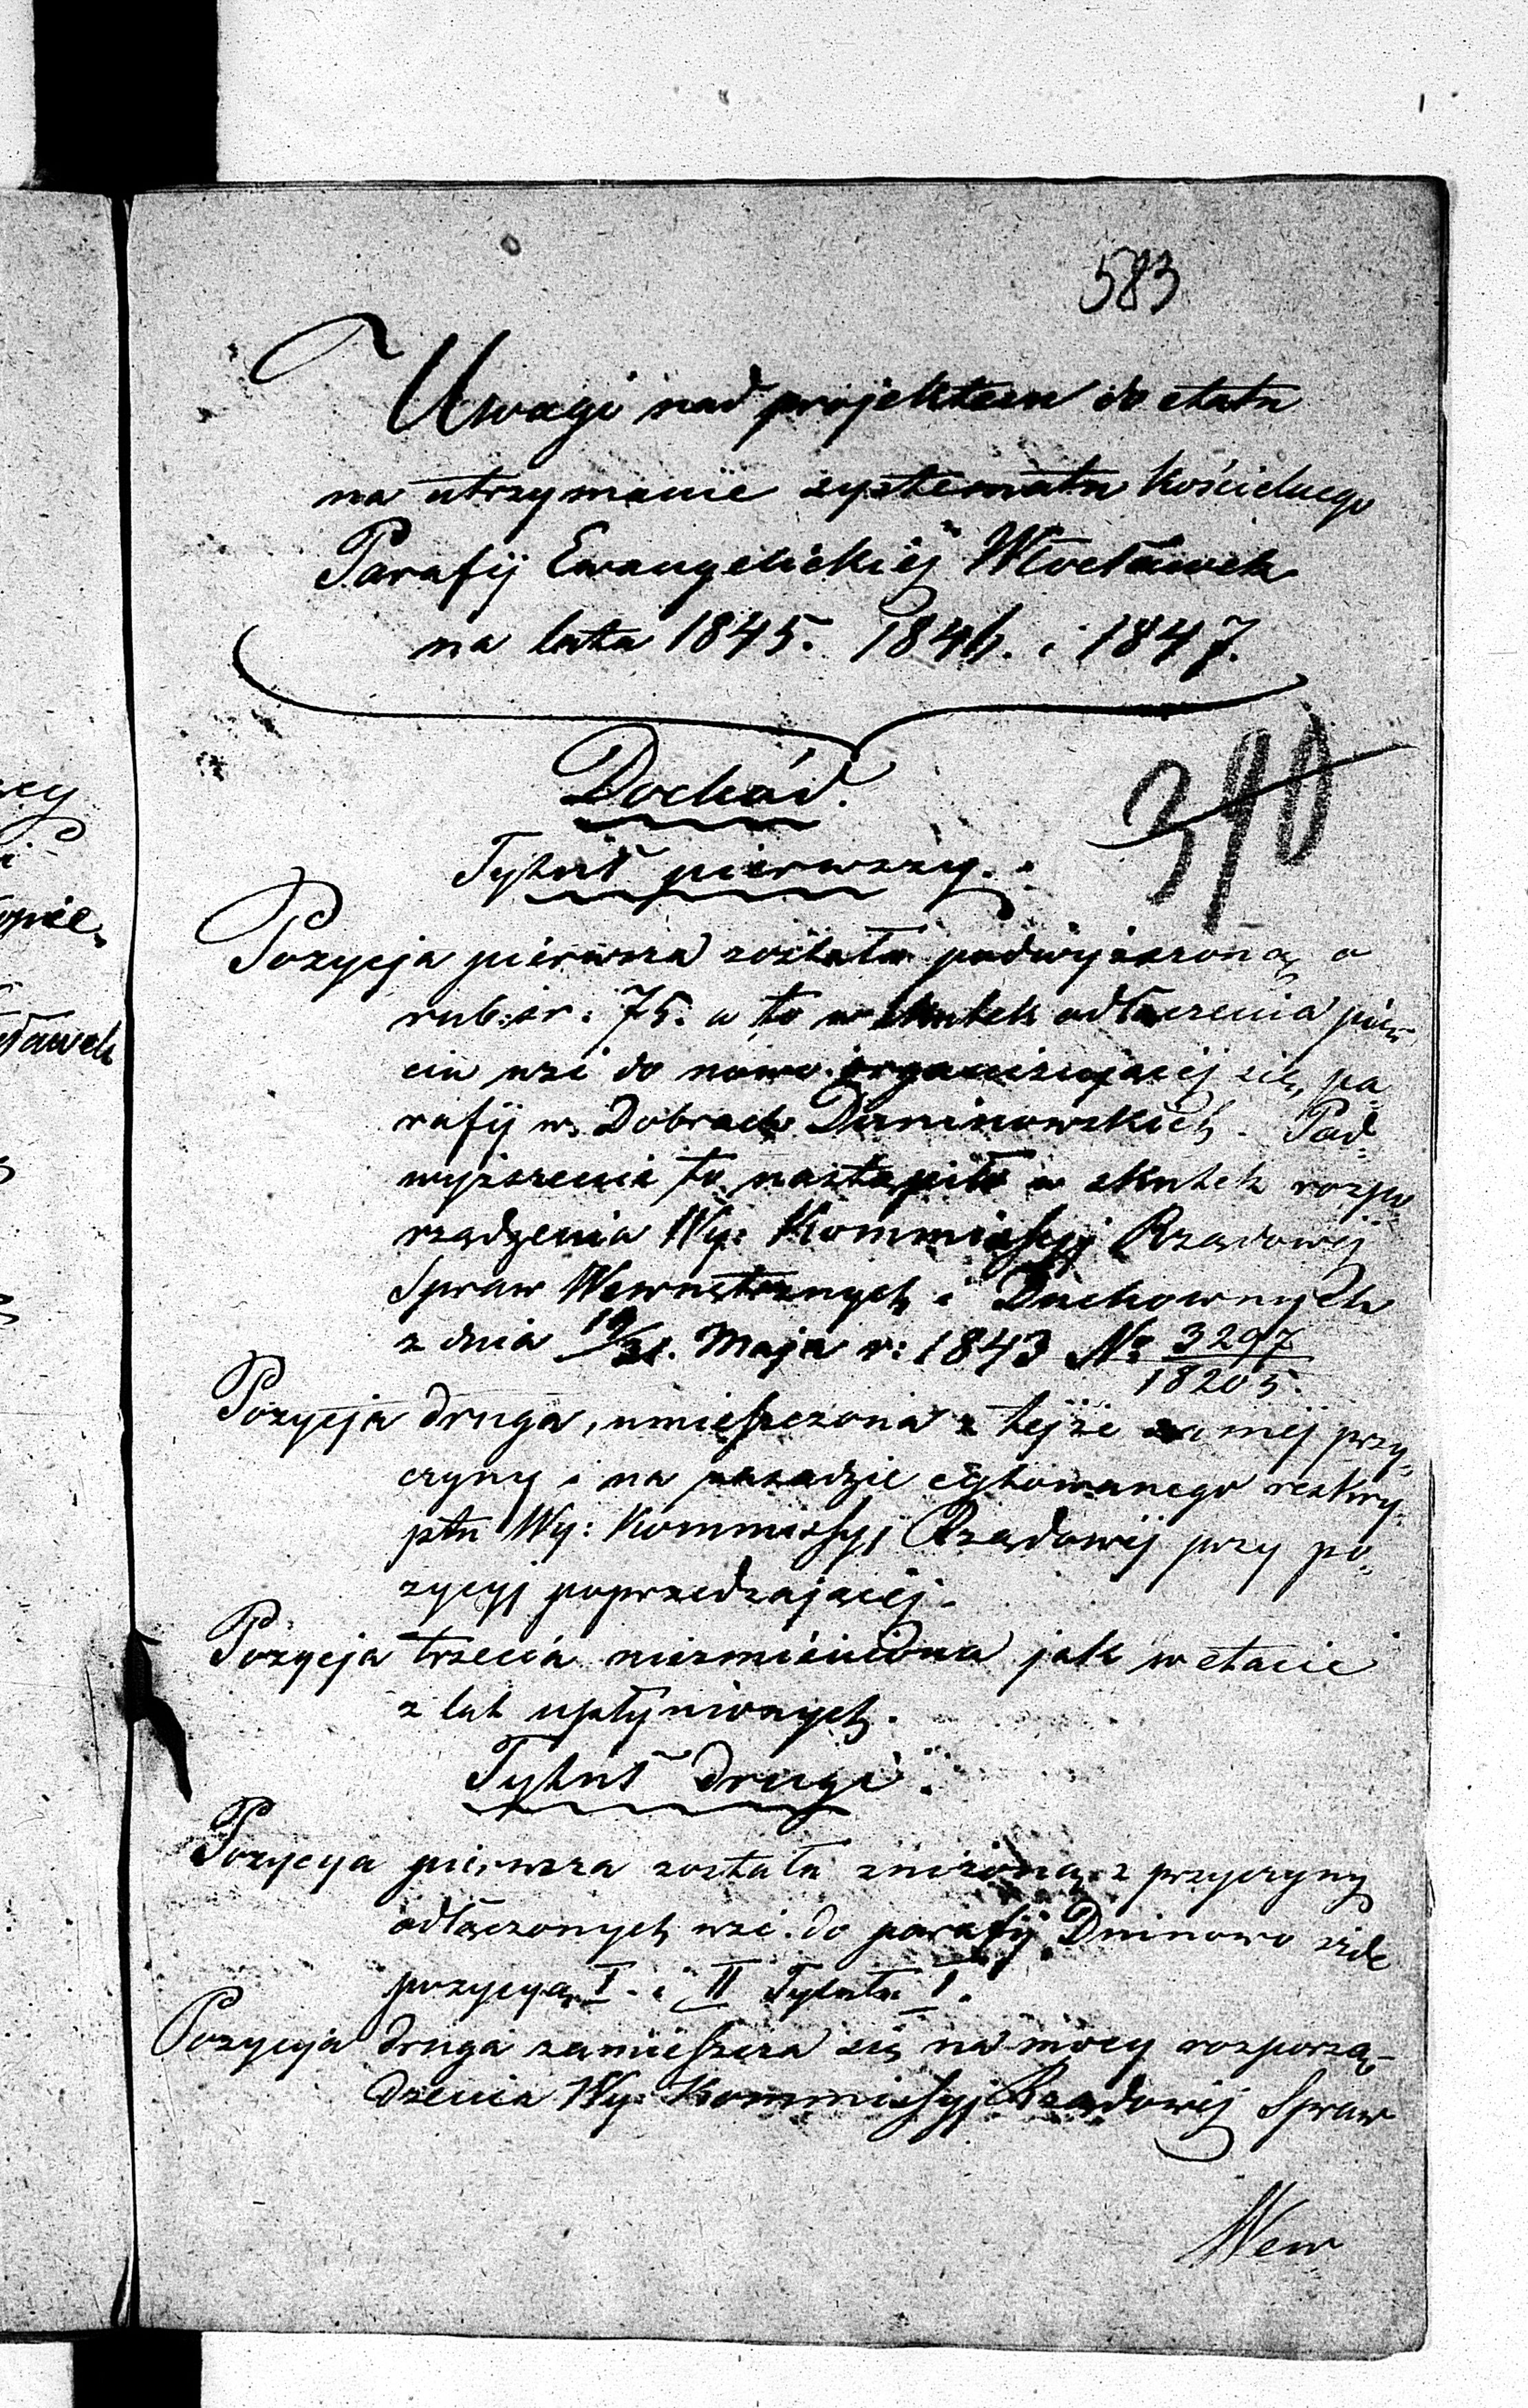 583
Uwagi nad projektem do etatu
na utrzymanie systematu Kościelnego
Parafij Ewangelickiéj Włocławek
na lata 1845. 1846. i 1847.
Dochód.
390
Tytuł pierwszy.
Pozycja pierwsza została podwyższoną o
rub: sr. 75. a to w skutek odłączenia
wsi do nowo organizującej się pa-
rafij w Dobrach Duninowskich. Pod-
wyższenie to nastąpiło w skutek rozpo-
rządzenia Wy: Kommissyj Rządowéj
Spraw Wewnętrznych i Duchownych
z dnia 19/31. Maja r: 1843 No 3297/18205.
Pozycja druga, umieszczona z tejże samej przy-
czyny i na zasadzie cytowanego reskry-
ptu Wy: Kommissyj Rządowéj przy po-
zycyj poprzedzającéj.
Pozycja trzecia niezmieniona jak w etacie
z lat upłynionych.
Tytuł drugi.
Pozycya pierwsza została zniżoną z przyczyny
odłączonych wsi do parafij Duninowo vide
pozycyą I. i II Tytułu I.
Pozycyja druga zamieszcza się na mocy rozporzą-
dzenia Wy: Kommissyj Rządowéj Spraw
Wew
cy
i
ławek